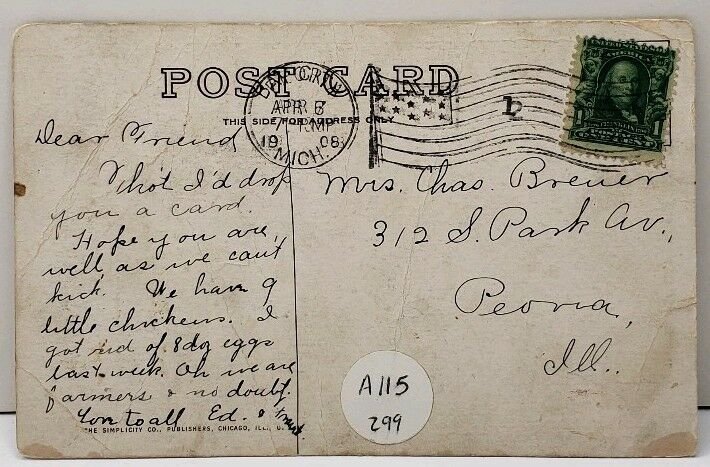 POST CARD
THIS SIDE FOR ADDRESS ONLY
BAY CITY
APR 6
1908
MICH.
1
Dear Friend
Thot I'd drop
you a card.
Hope you are,
well, as we can't
kick. We have 9
little chickens. I
got rid of 8 doz eggs
last week. Oh we are
farmers & no doubt.
Love to all Ed. &
THE SIMPLICITY CO., PUBLISHERS, CHICAGO, ILL., U.
Mrs. Chas. Breuer
312 S. Park Av.,
Peoria,
Ill..
A115
299